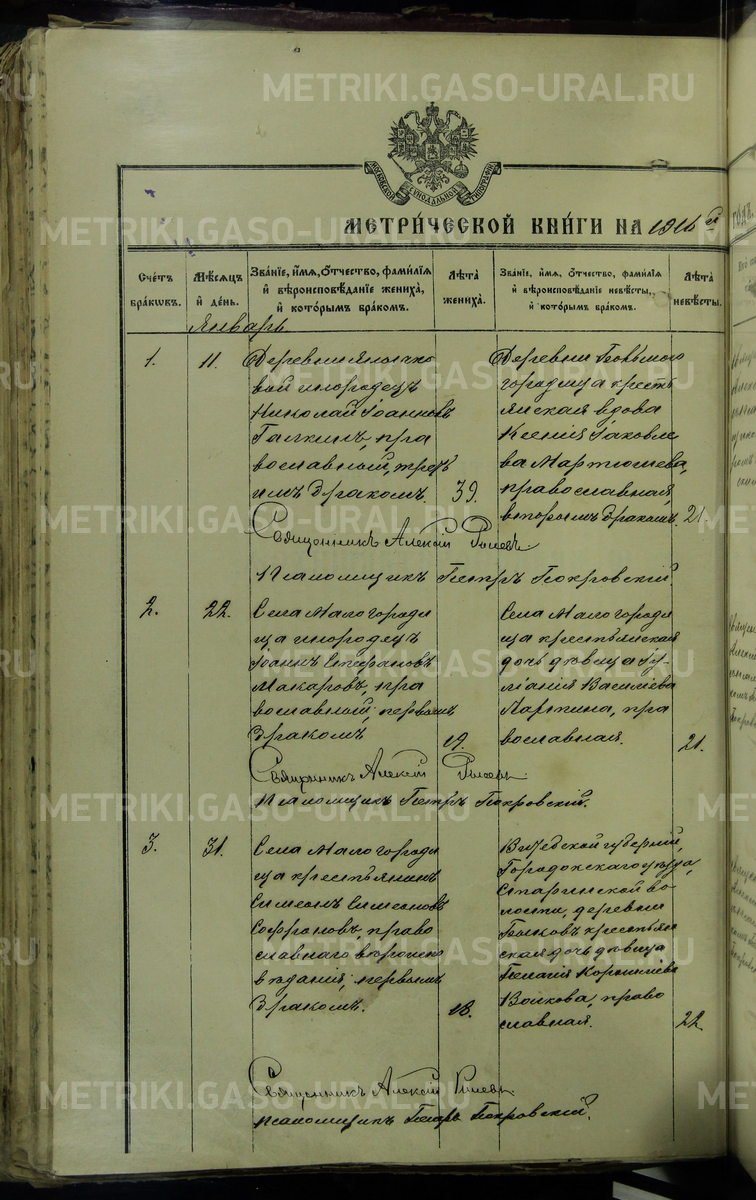 METRIKI.GASO-URAL.RU
МОСКОВСКОЙ СѴНОДАЛЬНОЙ ТИПОГРАФІИ
МЕТРИЧЕСКОЙ КНИГИ НА 1916 й
Счетъ браковъ.
Мѣсяцъ и день.
Званіе, имя, отчество, фамилія и вѣроисповѣданіе жениха, и которымъ бракомъ.
Лѣта жениха.
Званіе, имя, отчество, фамилія и вѣроисповѣданіе невѣсты, и которымъ бракомъ.
Лѣта невѣсты.
Январь
1.
11.
Деревни
вой инородецъ
Николай Іоанновъ
Галкинъ, пра
вославный, треть
имъ бракомъ.
39.
Деревни
городища кресть
янская вдова
Ксенія Іаковле
ва Мартюшева,
православная,
вторымъ бракомъ.
21.
Священникъ Алексій
Псаломщикъ Петръ Покровскій
2.
22.
Села Малогороди
ща инородецъ
Іоаннъ Стефановъ
Макаровъ, пра
вославный, первымъ
бракомъ
19.
Села Малогороди
ща крестьянская
дочь дѣвица Іу-
ліанія Василіева
пра
вославная.
21.
Священникъ Алексій
Псаломщикъ Петръ Покровскій.
3.
31.
Села Малогороди
ща крестьянинъ
Симеонъ Симеоновъ
Софроновъ, право
славнаго вѣроиспо
вѣданія, первымъ
бракомъ.
18.
Витебской губерніи,
Городокскаго уѣзда,
Старинской во
лости, деревни
крестьян
ская дочь дѣвица
Пелагія Корниліева
Волкова, право
славная.
22.
Священникъ Алексій
Псаломщикъ Петръ Покровскій.